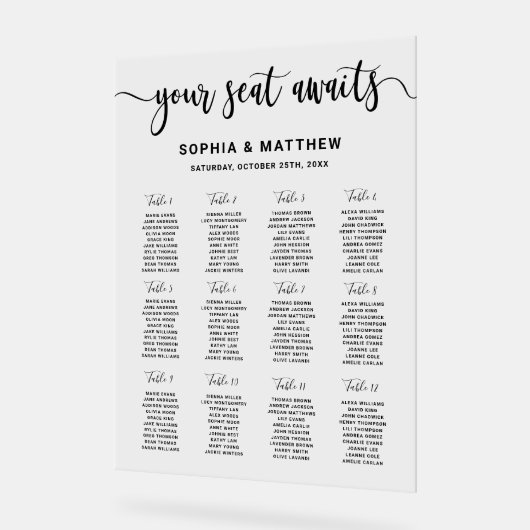 your seat awaits
SOPHIA & MATTHEW
SATURDAY, OCTOBER 25TH, 20XX
Table 1
MARIE EVANS
JANE ANDREWS
ADDISON WOODS
OLIVIA MOON
GRACE KING
JAKE WILLIAMS
RYLIE THOMAS
GREG THOMSON
DEAN THOMAS
SARAH WILLIAMS
Table 2
SIENNA MILLER
LUCY MONTGOMERY
TIFFANY LAN
ALEX WOODS
SOPHIE MOOR
ANNE WHITE
JOHN BEST
KATHY LAM
MARY YOUNG
JACKIE WINTERS
Table 3
THOMAS BROWN
ANDREW JACKSON
JORDAN MATTHEWS
LILY EVANS
AMELIA CARLIE
JOHN HESSION
JAYDEN THOMAS
LAVENDER BROWN
HARRY SMITH
OLIVE LAVANDI
Table 4
ALEXA WILLIAMS
DAVID KING
JOHN CHADWICK
HENRY THOMPSON
LILI THOMPSON
ANDREA GOMEZ
CHARLIE EVANS
JOANNE LEE
LEANNE COLE
AMELIE CARLAN
Table 5
MARIE EVANS
JANE ANDREWS
ADDISON WOODS
OLIVIA MOON
GRACE KING
JAKE WILLIAMS
RYLIE THOMAS
GREG THOMSON
DEAN THOMAS
SARAH WILLIAMS
Table 6
SIENNA MILLER
LUCY MONTGOMERY
TIFFANY LAN
ALEX WOODS
SOPHIE MOOR
ANNE WHITE
JOHN BEST
KATHY LAM
MARY YOUNG
JACKIE WINTERS
Table 7
THOMAS BROWN
ANDREW JACKSON
JORDAN MATTHEWS
LILY EVANS
AMELIA CARLIE
JOHN HESSION
JAYDEN THOMAS
LAVENDER BROWN
HARRY SMITH
OLIVE LAVANDI
Table 8
ALEXA WILLIAMS
DAVID KING
JOHN CHADWICK
HENRY THOMPSON
LILI THOMPSON
ANDREA GOMEZ
CHARLIE EVANS
JOANNE LEE
LEANNE COLE
AMELIE CARLAN
Table 9
MARIE EVANS
JANE ANDREWS
ADDISON WOODS
OLIVIA MOON
GRACE KING
JAKE WILLIAMS
RYLIE THOMAS
GREG THOMSON
DEAN THOMAS
SARAH WILLIAMS
Table 10
SIENNA MILLER
LUCY MONTGOMERY
TIFFANY LAN
ALEX WOODS
SOPHIE MOOR
ANNE WHITE
JOHN BEST
KATHY LAM
MARY YOUNG
JACKIE WINTERS
Table 11
THOMAS BROWN
ANDREW JACKSON
JORDAN MATTHEWS
LILY EVANS
AMELIA CARLIE
JOHN HESSION
JAYDEN THOMAS
LAVENDER BROWN
HARRY SMITH
OLIVE LAVANDI
Table 12
ALEXA WILLIAMS
DAVID KING
JOHN CHADWICK
HENRY THOMPSON
LILI THOMPSON
ANDREA GOMEZ
CHARLIE EVANS
JOANNE LEE
LEANNE COLE
AMELIE CARLAN